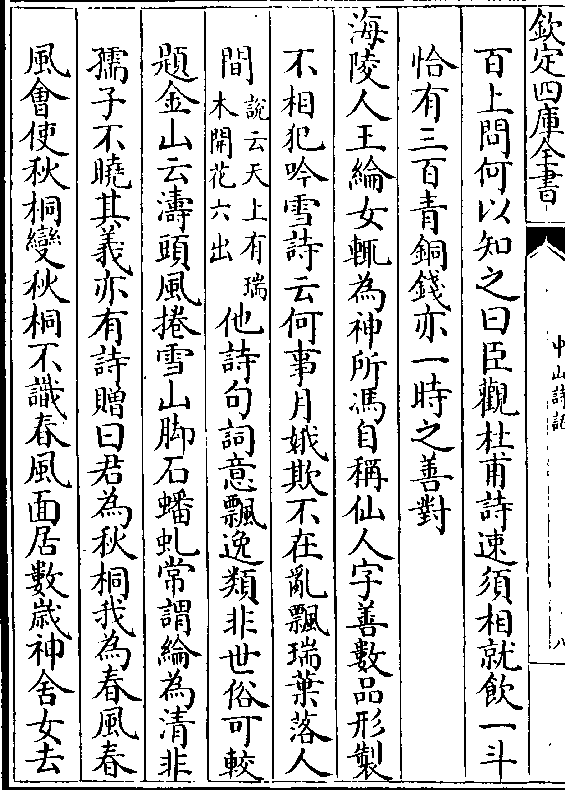 欽定四庫全書
中山詩話
八
百上問何以知之曰臣觀杜甫詩速須相就飲一斗
恰有三百青銅錢亦一時之善對
海陵人王綸女輒為神所馮自稱仙人字善數品形製
不相犯吟雪詩云何事月娥欺不在亂飄瑞葉落人
間說云天上有瑞木開花六出他詩句詞意飄逸類非世俗可較
題金山云濤頭風捲雪山脚石蟠虬常謂綸為清非
孺子不曉其義亦有詩贈曰君為秋桐我為春風春
風會使秋桐變秋桐不識春風面居數歲神舍女去